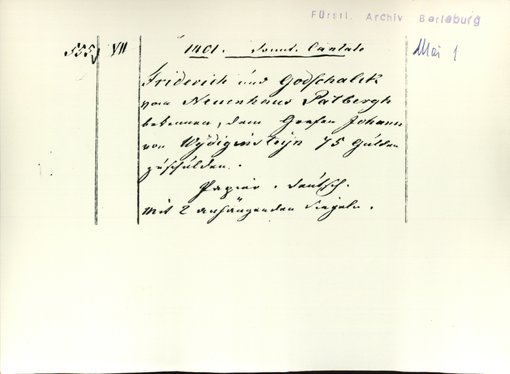 Fürstl. Archiv Berleburg
555 VII 1401. Sonnt. Cantate Mai 1
Friderich und Godschalck
vom Neuenhaus Patbergh
bekennen, dem Grafen Johann
von Wydiginsteyn 75 Gulden
zuschulden.
Papier. deutsch.
Mit 2 anhängenden Siegeln.